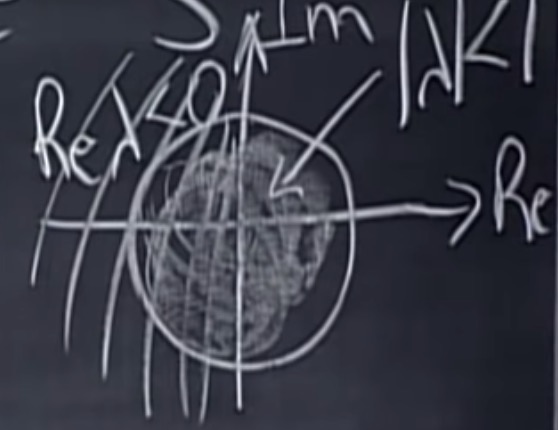 Im
|λ|<1
Re λ<0
Re